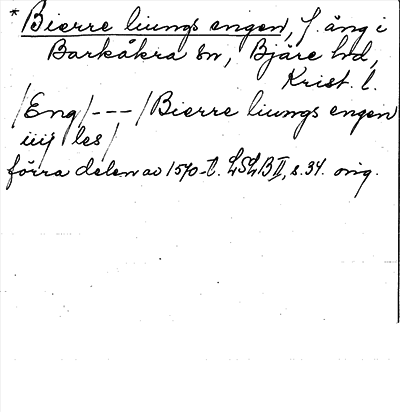 * Bierre liungs engen, f. äng i
Barkåkra sn, Bjäre hd,
Krist. l.
/Eng/ --- /Bierre liungs engen
iiij les/
förra delen av 1570-t. LSLB II, s. 34. orig.